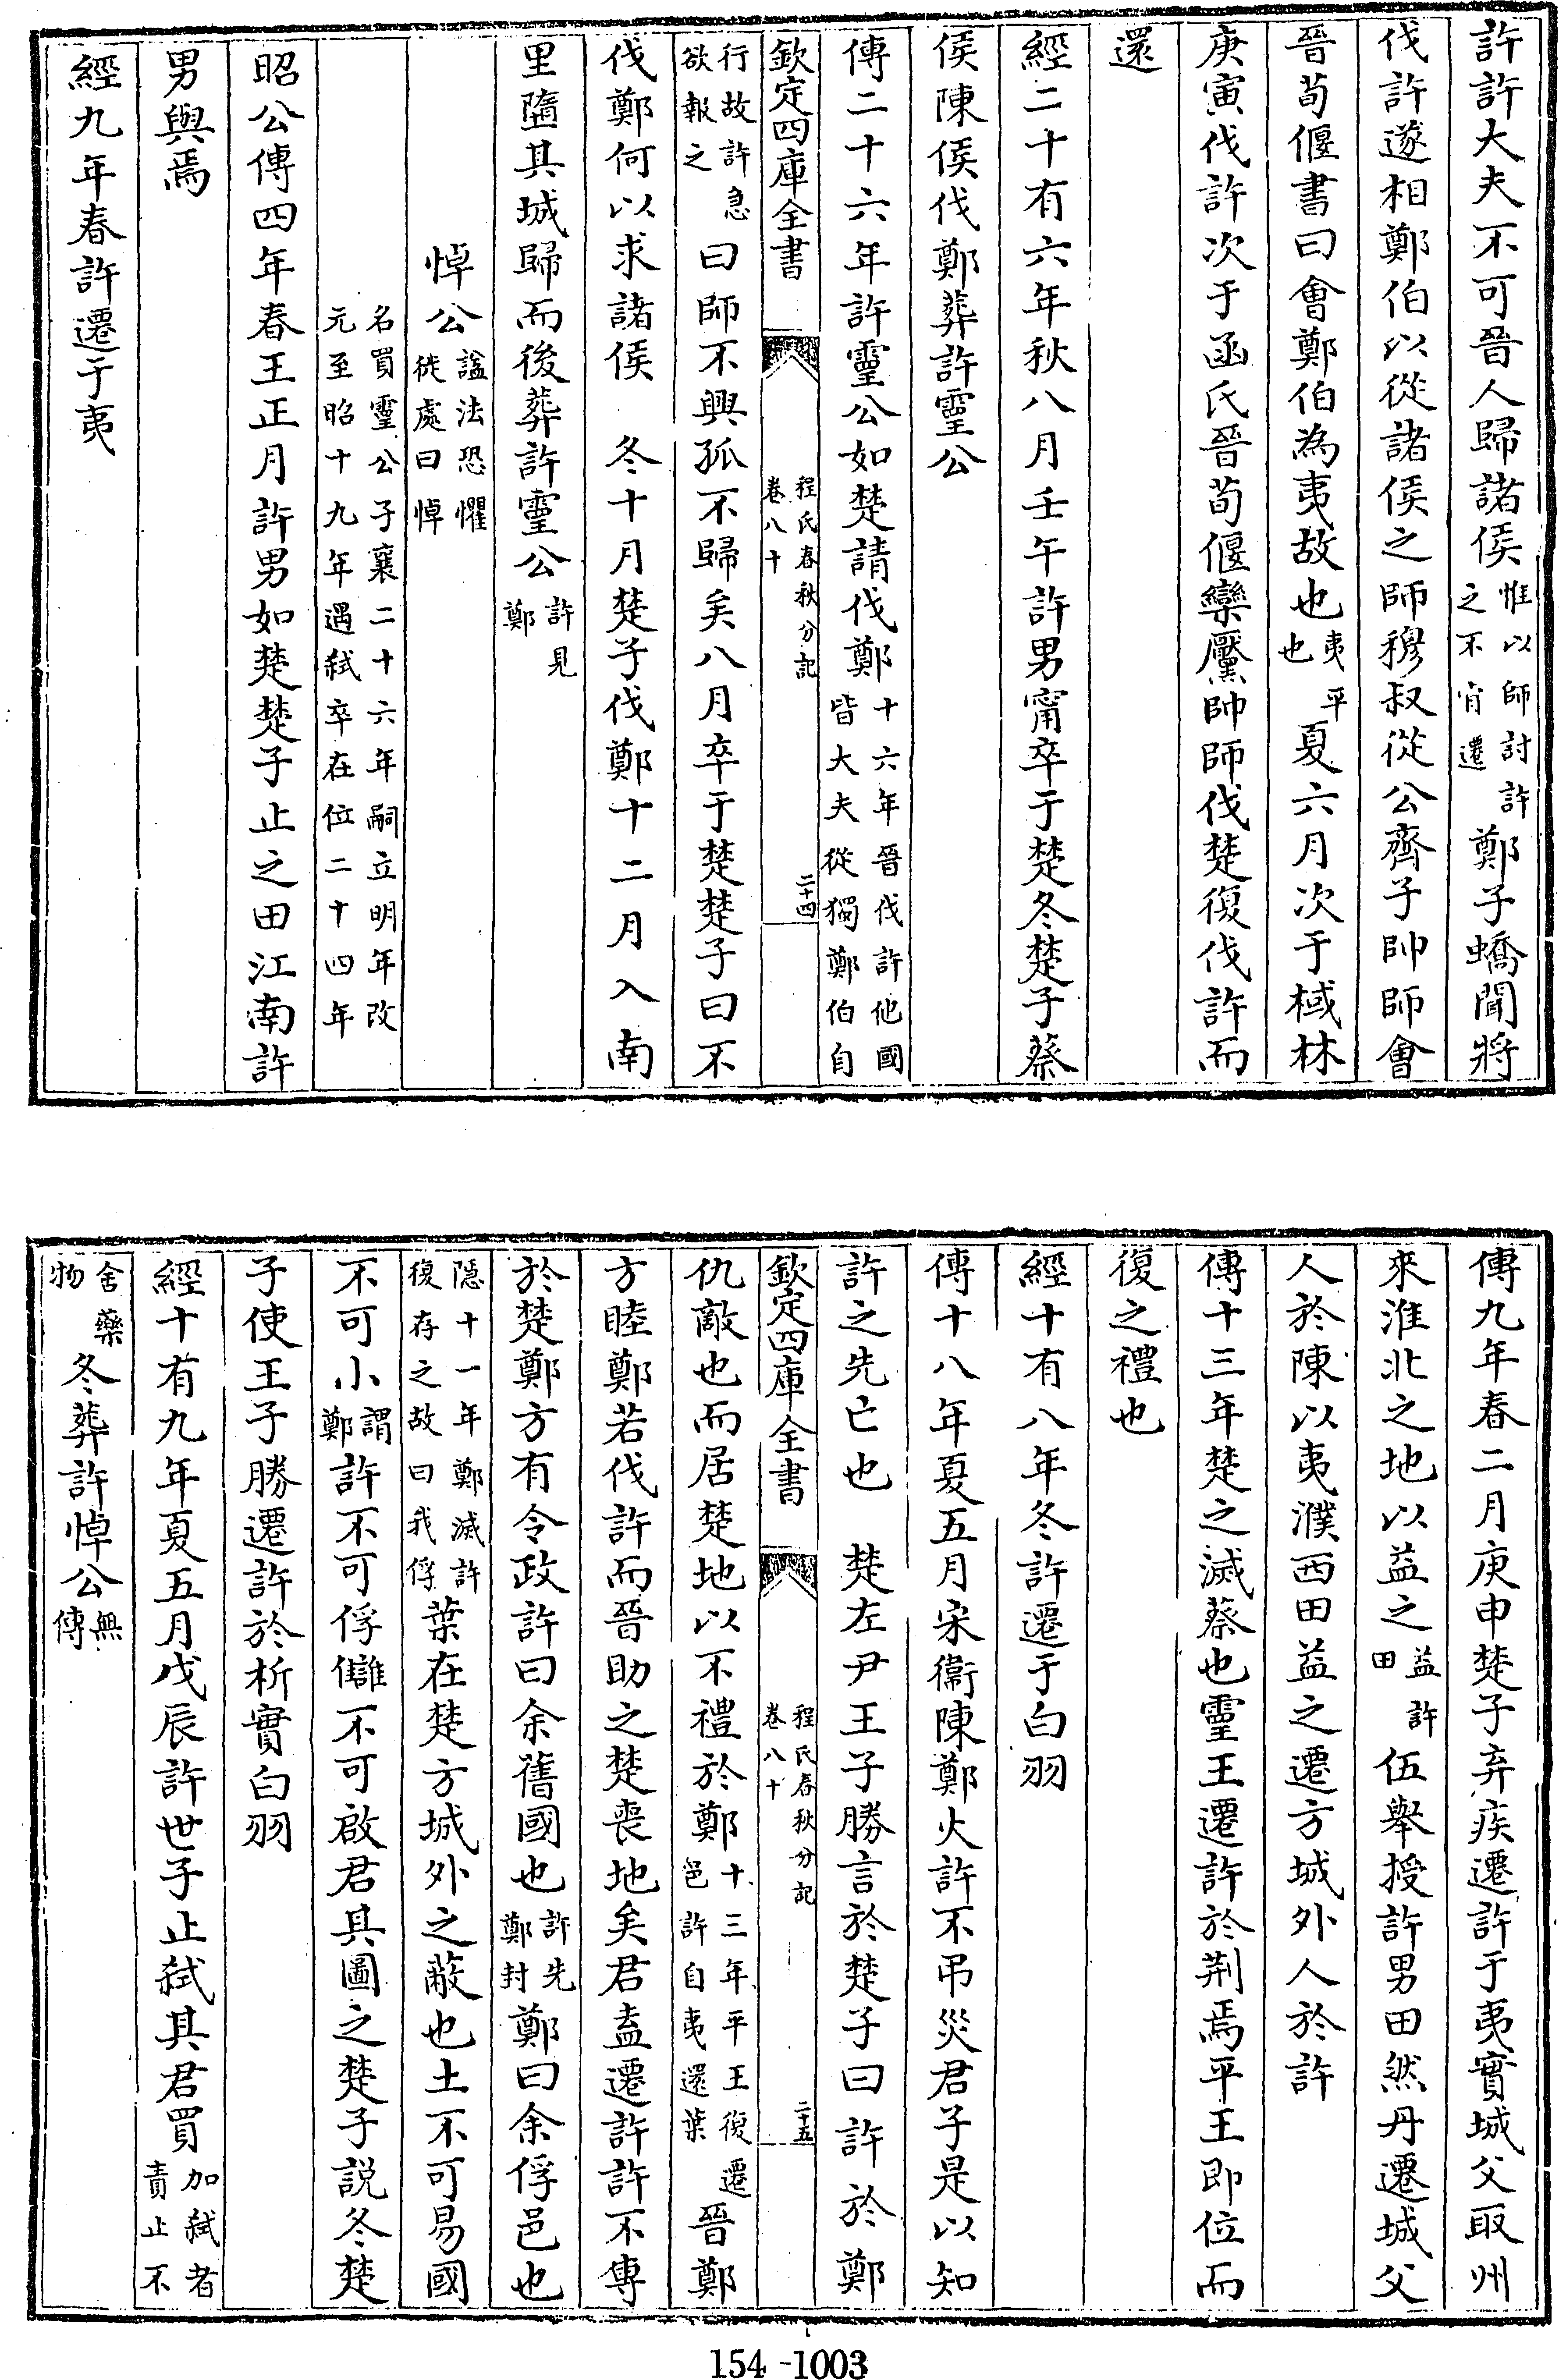 許許大夫不可晉人歸諸侯惟以師討許之不肯遷鄭子蟜聞將
伐許遂相鄭伯以從諸侯之師穆叔從公齊子帥師會
晉荀偃書曰會鄭伯為夷故也夷平也夏六月次于棫林
庚寅伐許次于函氏晉荀偃欒黶帥師伐楚復伐許而
還
經二十有六年秋八月壬午許男甯卒于楚冬楚子蔡
侯陳侯伐鄭葬許靈公
傳二十六年許靈公如楚請伐鄭十六年晉伐許他國皆大夫從獨鄭伯自
欽定四庫全書 程氏春秋分記卷八十 二十四
行故許急欲報之曰師不興孤不歸矣八月卒于楚楚子曰不
伐鄭何以求諸侯 冬十月楚子伐鄭十二月入南
里墮其城歸而後葬許靈公許見鄭
悼公諡法恐懼徙處曰悼
名買靈公子襄二十六年嗣立明年改元至昭十九年遇弑卒在位二十四年
昭公傳四年春王正月許男如楚楚子止之田江南許
男與焉
經九年春許遷于夷
傳九年春二月庚申楚子弃疾遷許于夷實城父取州
來淮北之地以益之益許田伍舉授許男田然丹遷城父
人於陳以夷濮西田益之遷方城外人於許
傳十三年楚之滅蔡也靈王遷許於荆焉平王即位而
復之禮也
經十有八年冬許遷于白羽
傳十八年夏五月宋衞陳鄭火許不弔災君子是以知
許之先亡也 楚左尹王子勝言於楚子曰許於鄭
欽定四庫全書 程氏春秋分記卷八十 二十五
仇敵也而居楚地以不禮於鄭十三年平王復遷邑許自夷還葉晉鄭
方睦鄭若伐許而晉助之楚喪地矣君盍遷許許不專
於楚鄭方有令政許曰余舊國也許先鄭封鄭曰余俘邑也
隱十一年鄭滅許復存之故曰我俘葉在楚方城外之蔽也土不可易國
不可小謂鄭許不可俘讎不可啟君其圖之楚子説冬楚
子使王子勝遷許於析實白羽
經十有九年夏五月戊辰許世子止弑其君買加弑者責止不
舍藥物冬葬許悼公無傳
154-1003